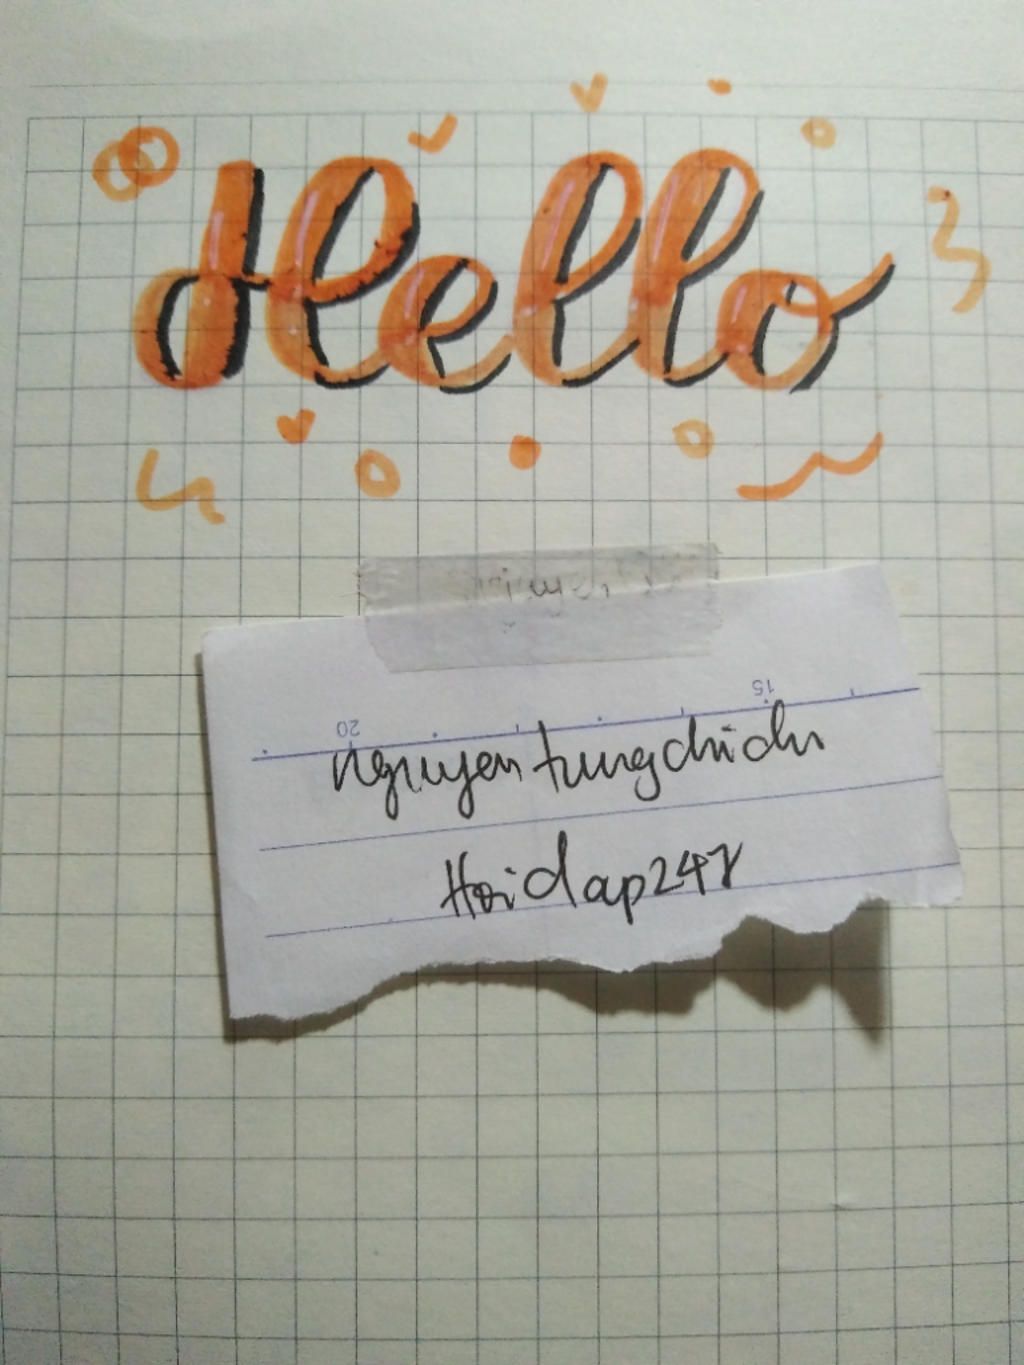 Hello
20 15
nguyen tungchichi
Hoidap247